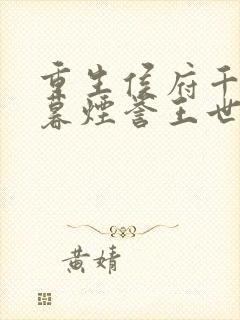 重生侯府千
暮煙誉王世
黄婧